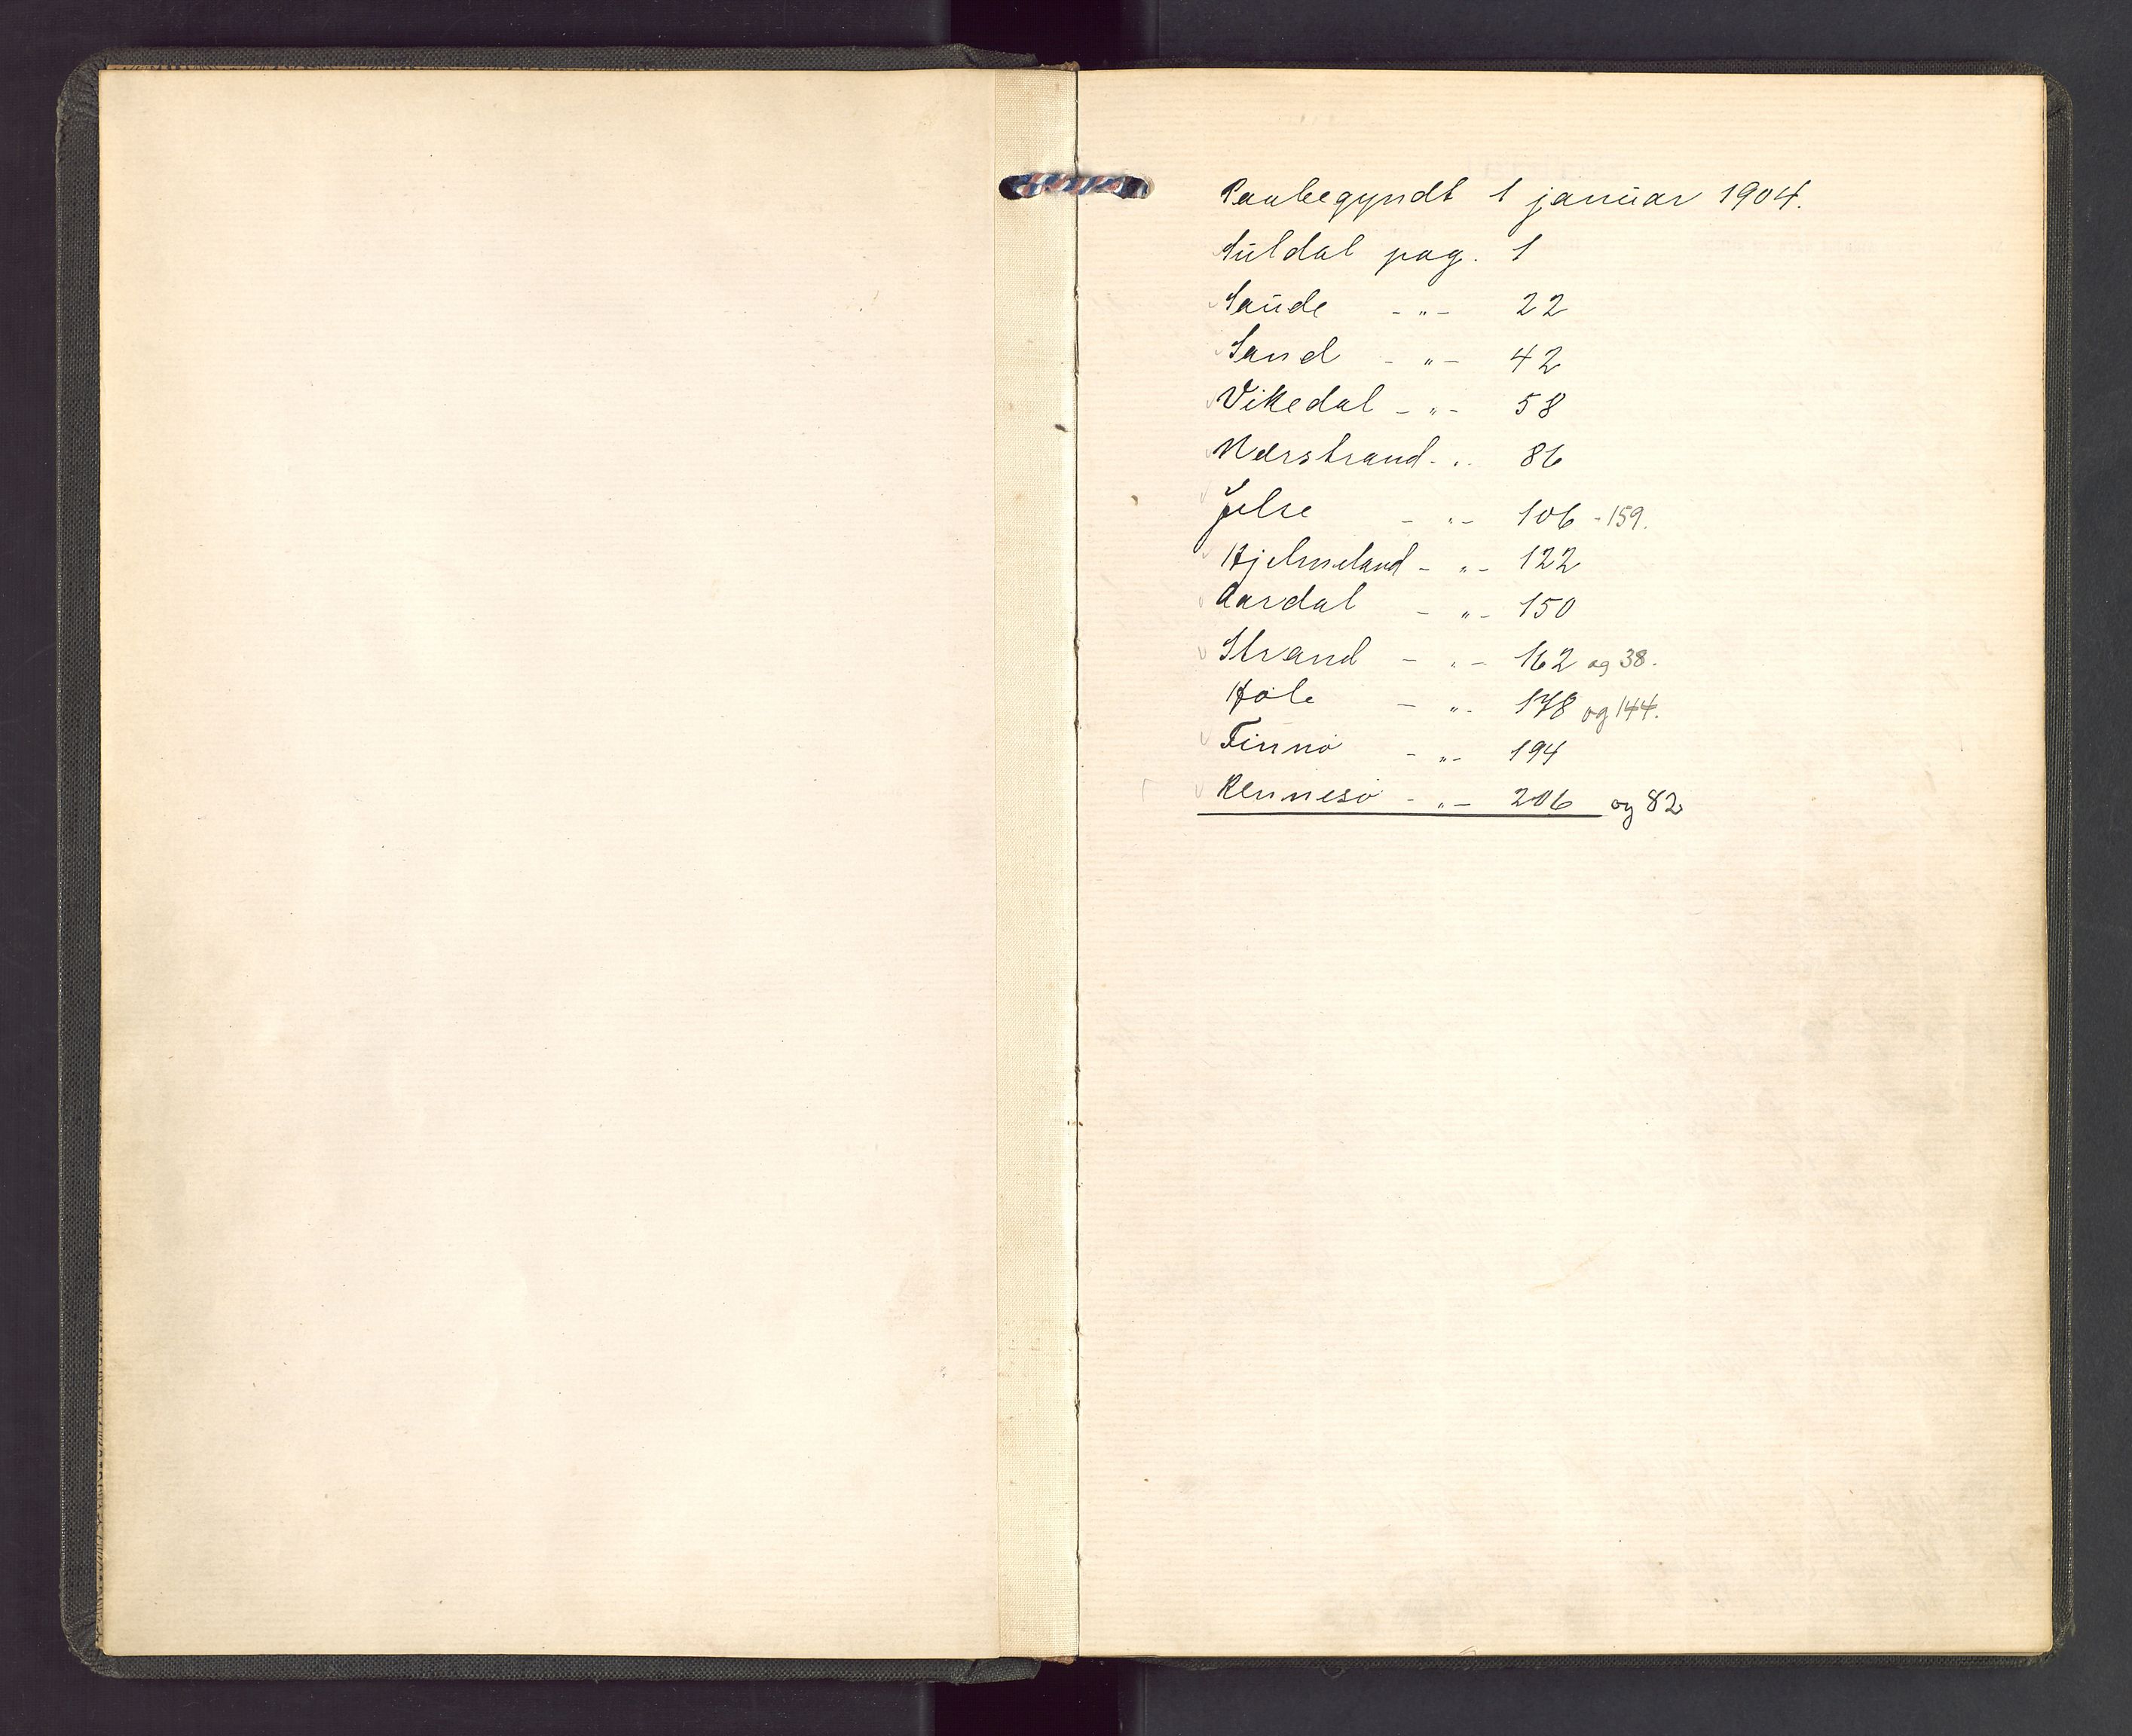 Paabegyndt 1 januar 1904.
Suldal pag. 1
Saude - " - 22
Sand - " - 42
Vikedal - " - 58
Nærstrand - " 86
Jelse - " - 106 - 159.
Hjelmeland - " - 122
Aardal - " - 150
Strand - " - 162 og 38.
Høle - " - 178 og 144.
Finnø - " - 194
Rennesø - " - 206 og 82